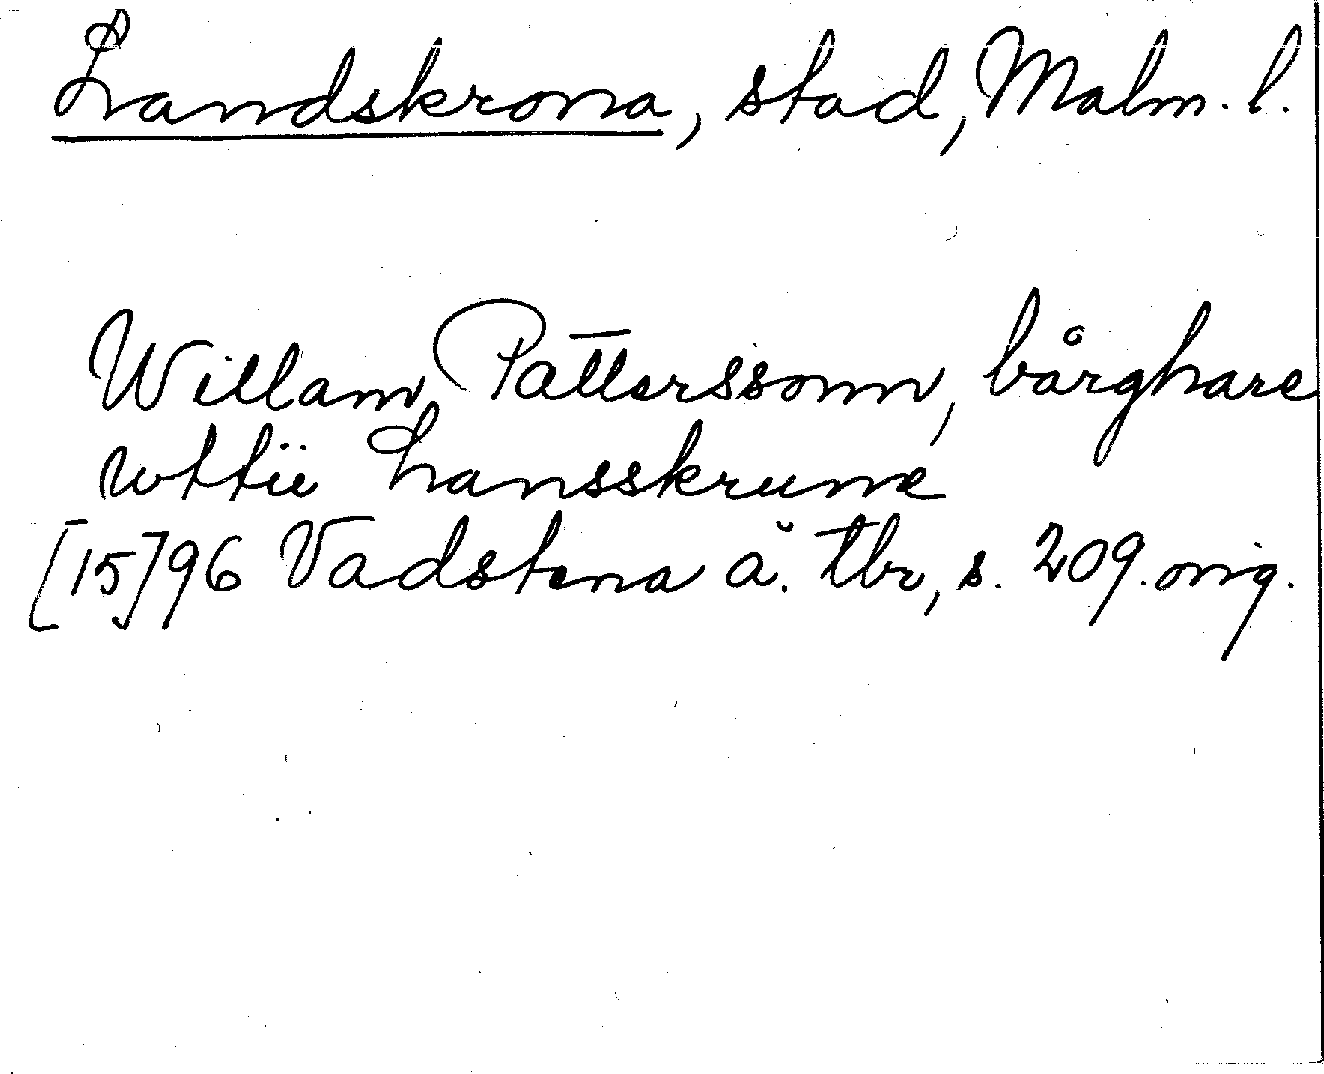 Landskrona, stad, Malm. l.
Willam Patterssonn, bårghare
wttii Lansskrune
[15]96 Vadstena ä. tbr, s. 209. orig.